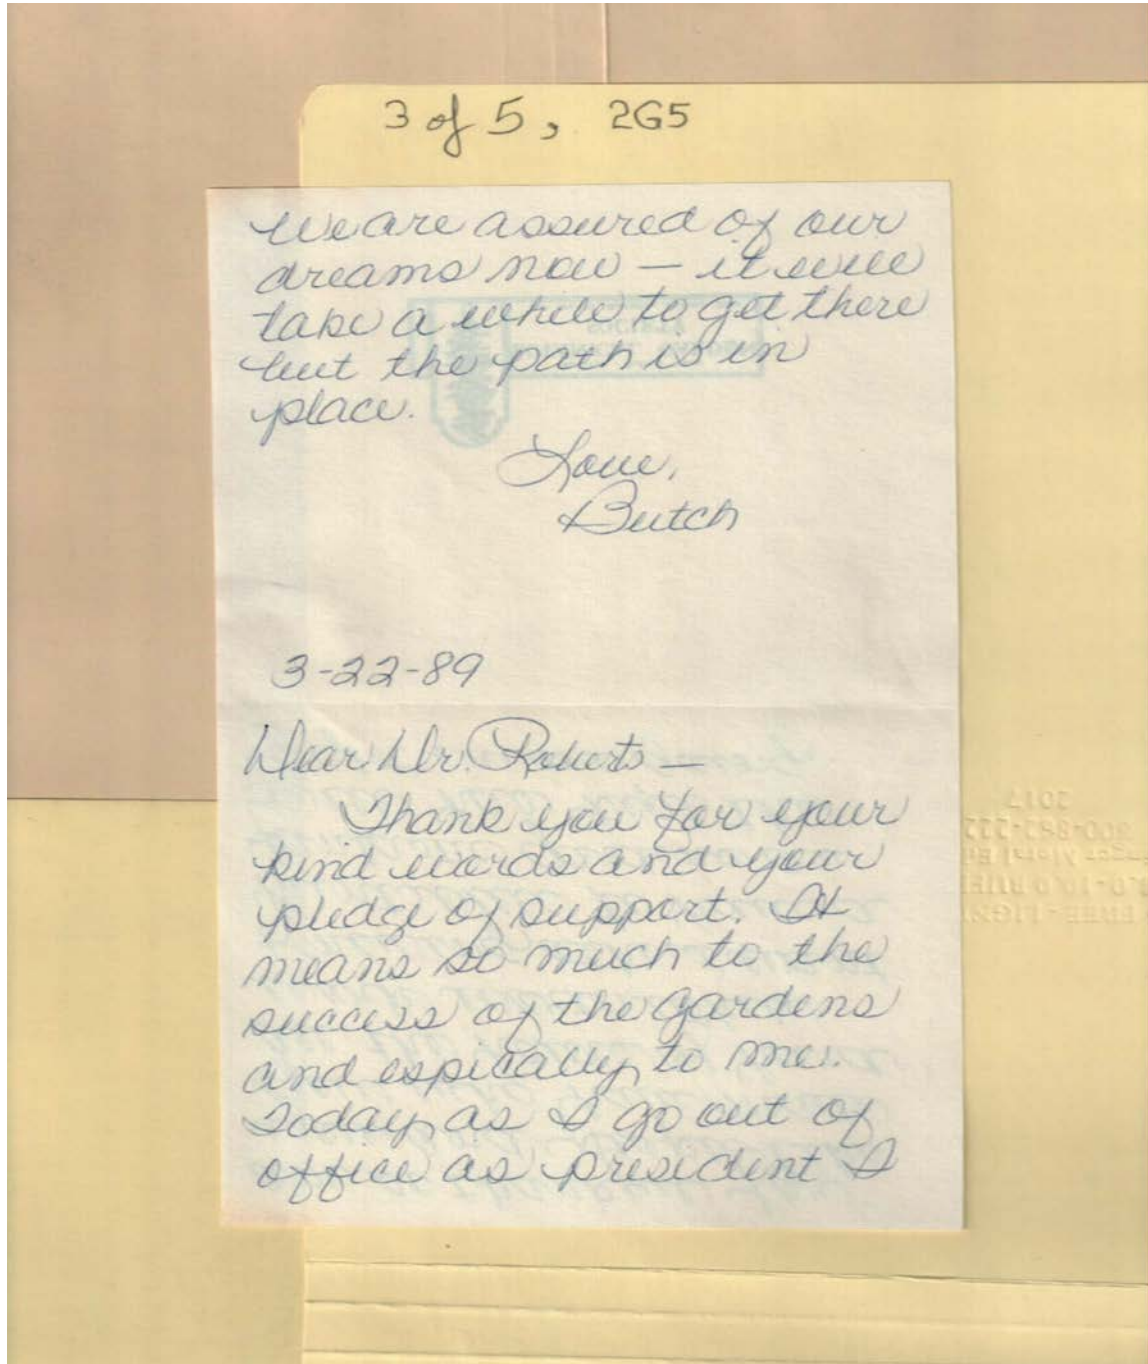 3 of 5, 2G5
We are assured of our
dreams now — it will
take a while to get there
but the path is in
place.
Love,
Butch
3-22-89
Dear Dr. Roberts —
Thank you for your
kind words and your
pledge of support. It
means so much to the
success of the Gardens
and espically to me.
Today as I go out of
office as president I